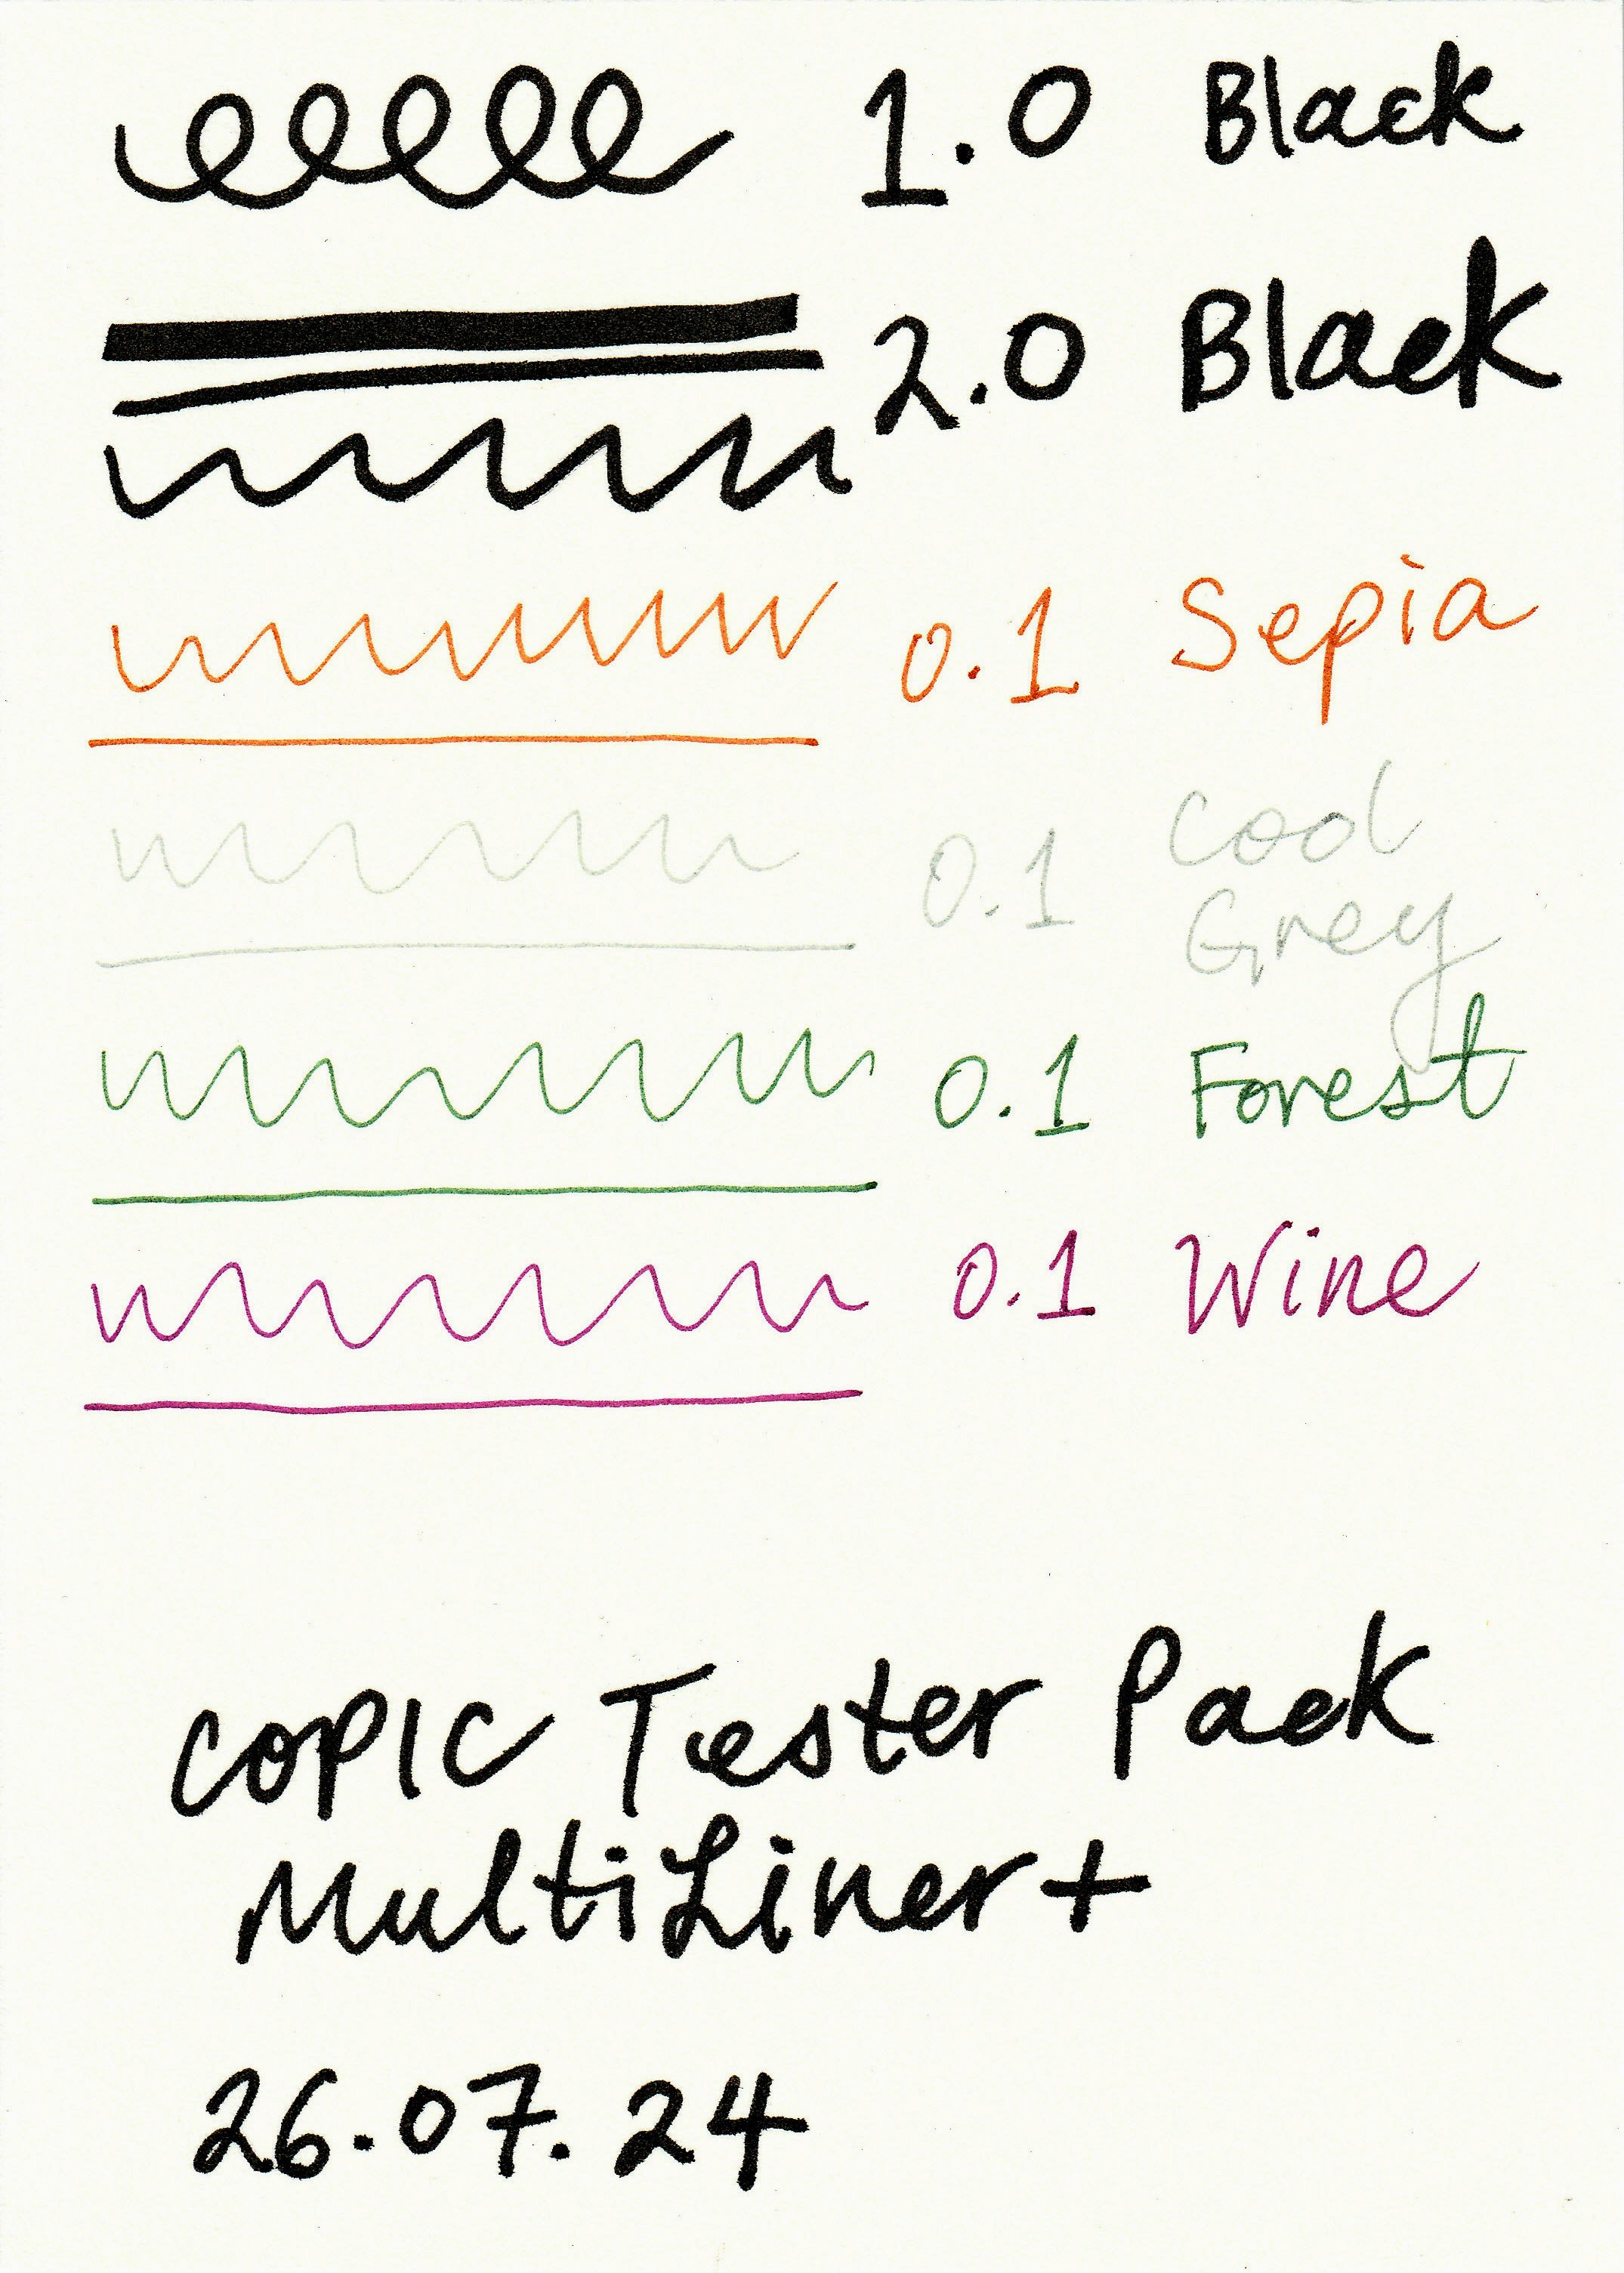 1.0 Black
2.0 Black
0.1 Sepia
0.1 Cool
Grey
0.1 Forest
0.1 Wine
COPIC Tester Pack
MultiLiner+
26.07.24